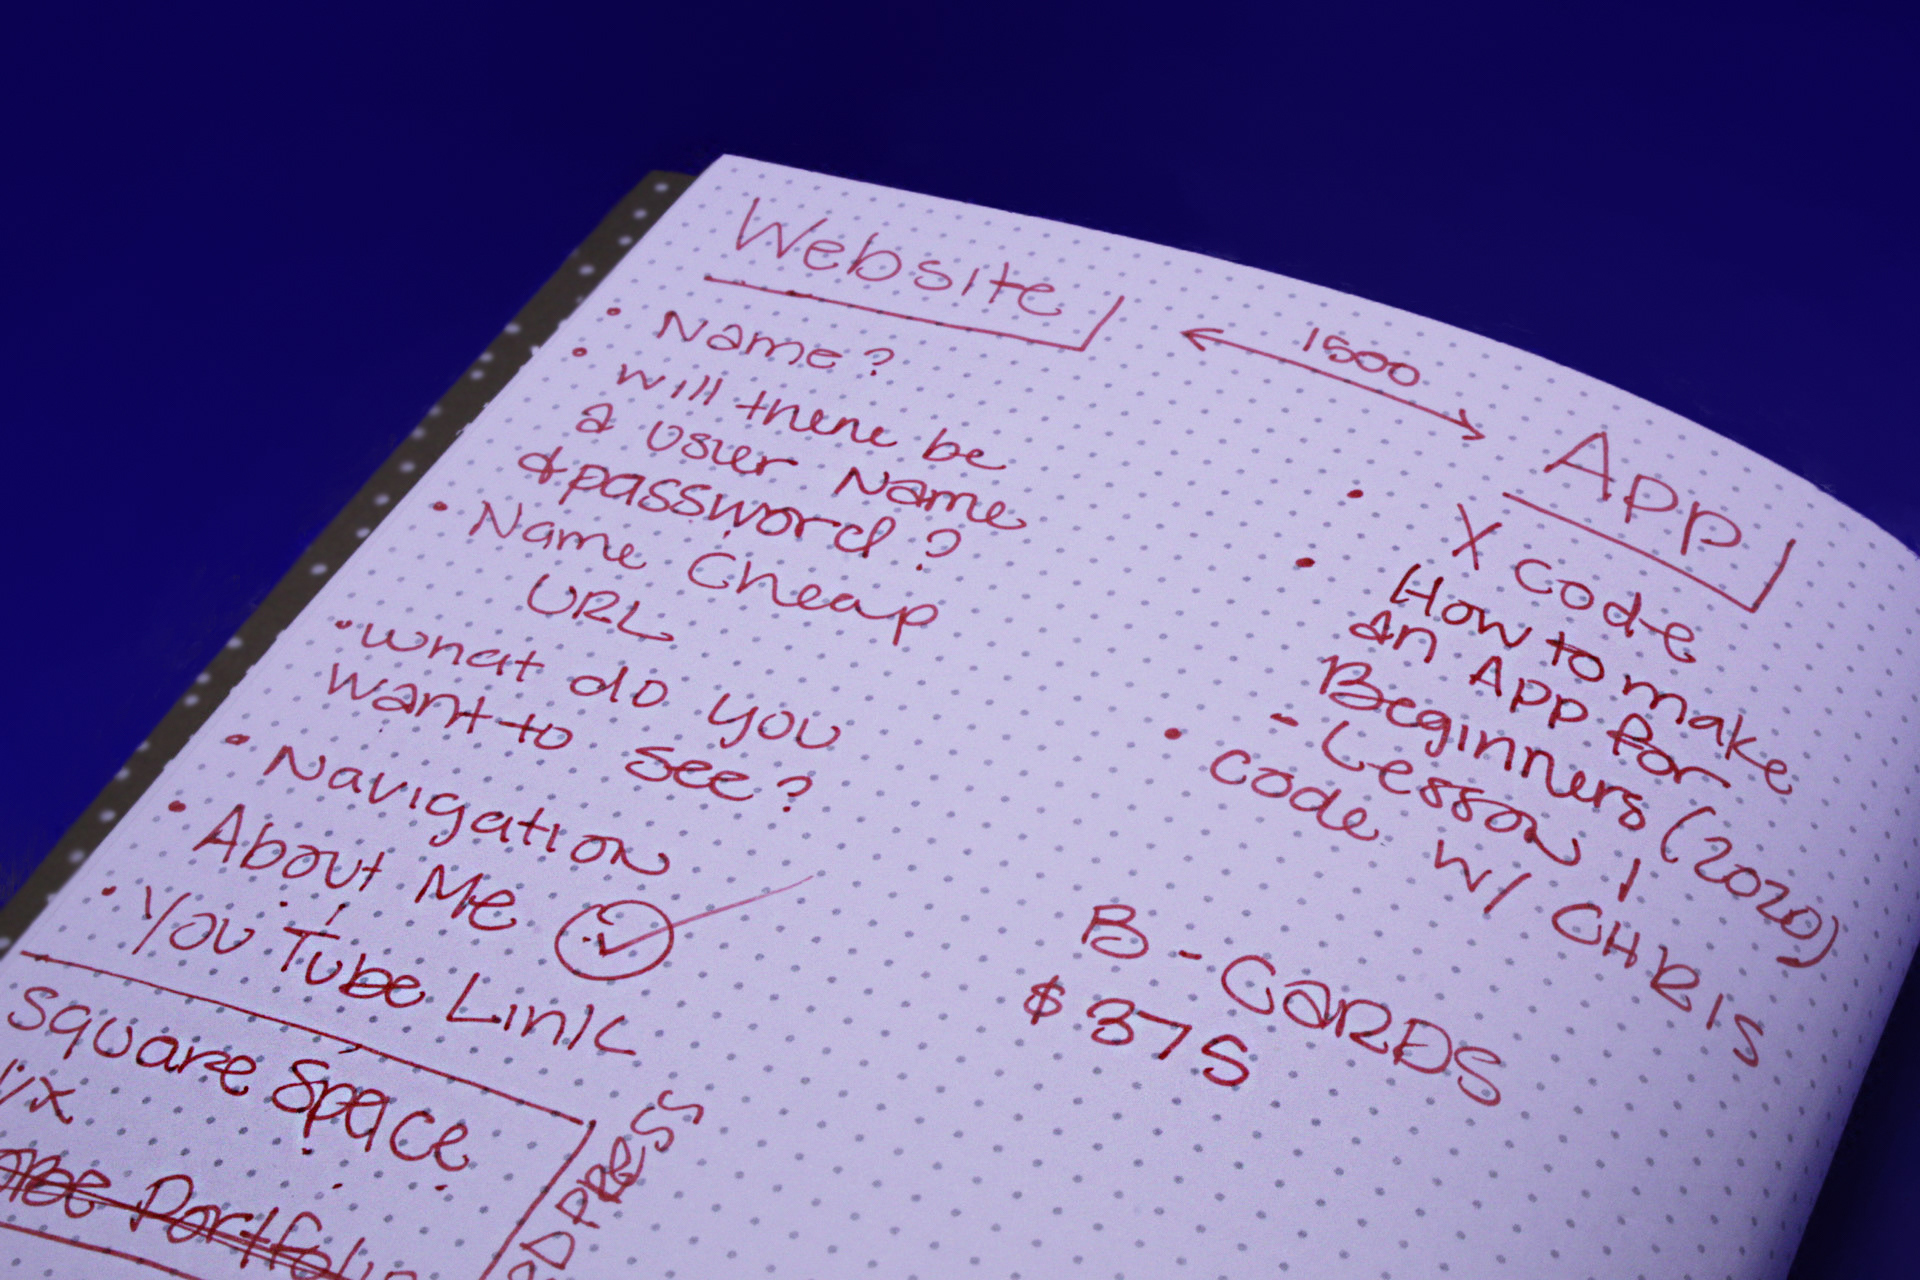 Website
• Name?
• will there be
a user Name
& password?
• Name Cheap
URL
• What do you
want to see?
• Navigation
• About Me
• YouTube Link
Square Space
Portfolio
PRESS
1500
App
• X code
• How to make
an App for
Beginners (2020)
- Lesson 1
• Code w/ CHRIS
B-CARDS
$375